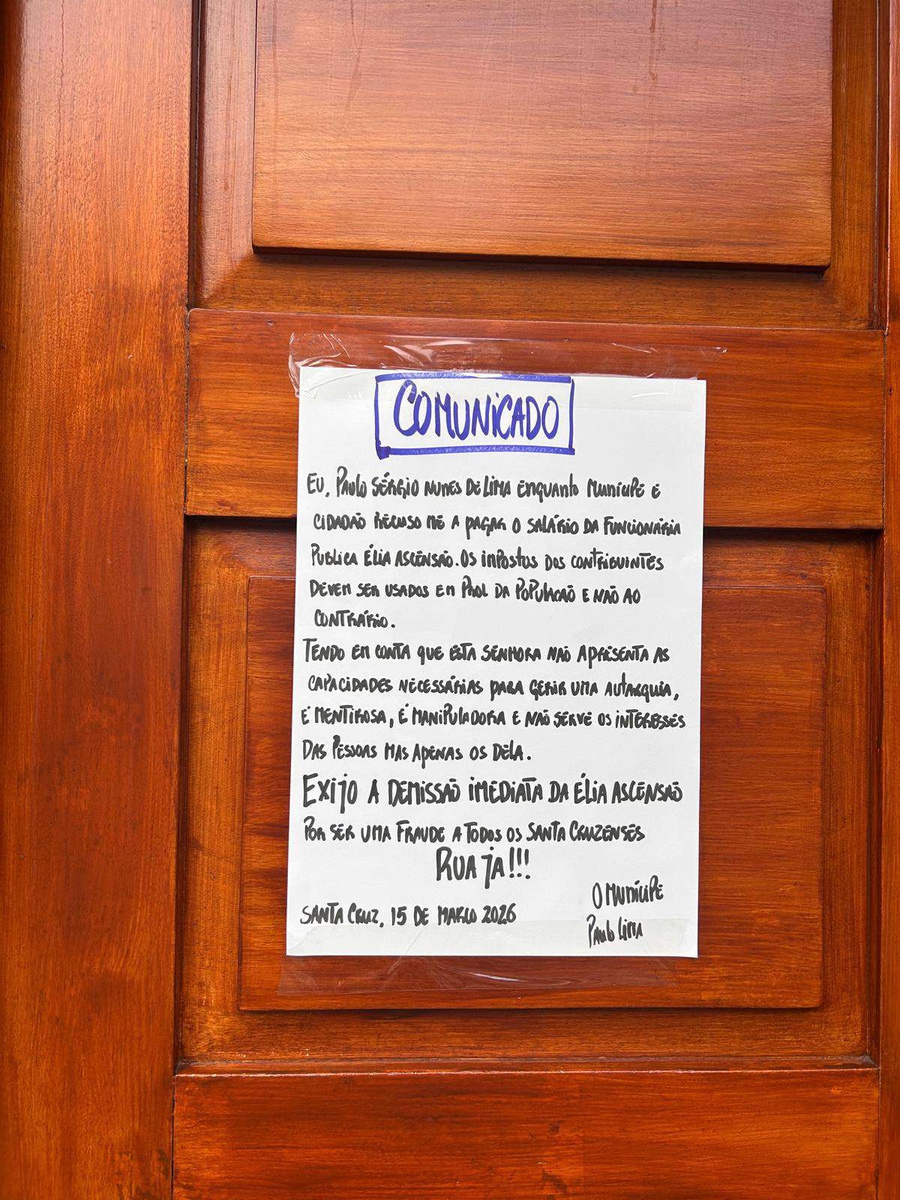 COMUNICADO
EU, PAULO SÉRGIO NUNES DE LIMA ENQUANTO MUNÍCIPE E
CIDADÃO RECUSO ME A PAGAR O SALÁRIO DA FUNCIONÁRIA
PUBLICA ÉLIA ASCENSÃO. OS IMPOSTOS DOS CONTRIBUINTES
DEVEM SER USADOS EM PROL DA POPULAÇÃO E NÃO AO
CONTRÁRIO.
TENDO EM CONTA QUE ESTA SENHORA NÃO APRESENTA AS
CAPACIDADES NECESSÁRIAS PARA GERIR UMA AUTARQUIA,
É MENTIROSA, É MANIPULADORA E NÃO SERVE OS INTERESSES
DAS PESSOAS MAS APENAS OS DELA.
EXIJO A DEMISSÃO IMEDIATA DA ÉLIA ASCENSÃO
POR SER UMA FRAUDE A TODOS OS SANTA CRUZENSES
RUA JA!!!
O MUNÍCIPE
SANTA CRUZ, 15 DE MARÇO 2026
Paulo Lima